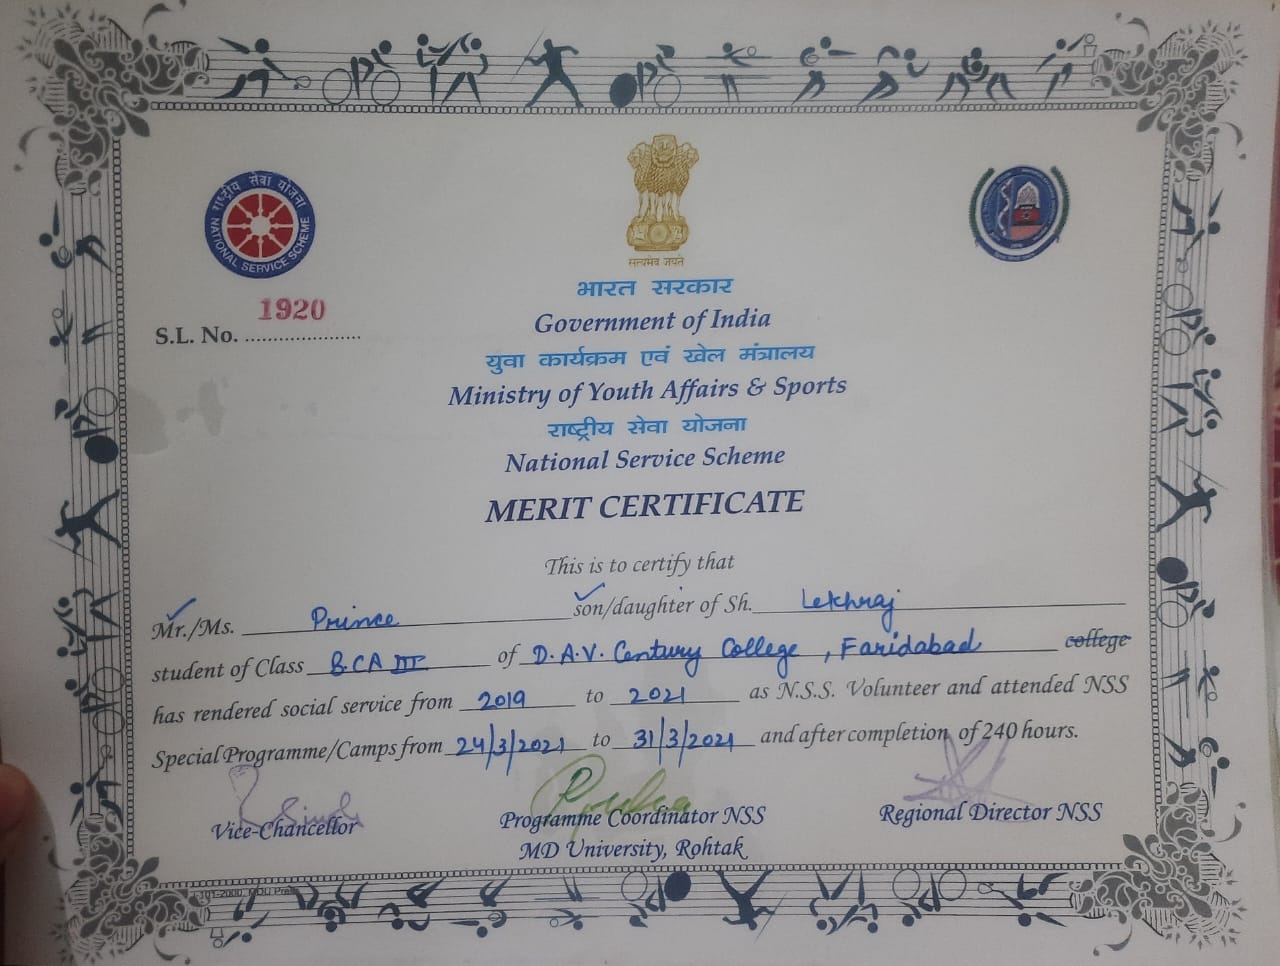 राष्ट्रीय सेवा योजना
NATIONAL SERVICE SCHEME
सत्यमेव जयते
1920
S.L. No. ....................
भारत सरकार
Government of India
युवा कार्यक्रम एवं खेल मंत्रालय
Ministry of Youth Affairs & Sports
राष्ट्रीय सेवा योजना
National Service Scheme
MERIT CERTIFICATE
This is to certify that
Mr./Ms. Prince son/daughter of Sh. Lekhraj
student of Class B.CA III of D.A.V. Century College, Faridabad college
has rendered social service from 2019 to 2021 as N.S.S. Volunteer and attended NSS
Special Programme/Camps from 24/3/2021 to 31/3/2021 and after completion of 240 hours.
Vice-Chancellor Programme Coordinator NSS Regional Director NSS
MD University, Rohtak